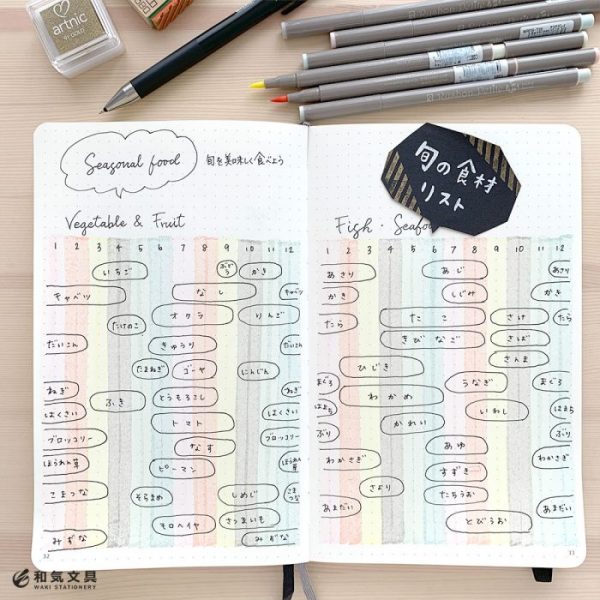 artnic
Seasonal food
旬を美味しく食べよう
旬の食材
リスト
Vegetable & Fruit
1 2 3 4 5 6 7 8 9 10 11 12
いちご ぶどう かき
キャベツ なし キャベツ
オクラ りんご
たけのこ
だいこん きゅうり だいこん
たまねぎ ゴーヤ にんじん
ねぎ とうもろこし ねぎ
ふき
はくさい トマト はくさい
ブロッコリー なす ブロッコリー
ほうれん草 ピーマン ほうれん草
こまつな そらまめ しめじ こまつな
モロヘイヤ さつまいも
みずな みずな
32
Fish・Seafood
1 2 3 4 5 6 7 8 9 10 11 12
あさり あじ あさり
かき しじみ かき
たら たこ さけ たら
きびなご さば
さんま
ひじき
まぐろ うなぎ まぐろ
わかめ
はまち いわし はまち
ぶり かれい ぶり
あゆ
わかさぎ わかさぎ
すずき
さより たちうお
あまだい あまだい
とびうお
33
和気文具
WAKI STATIONERY